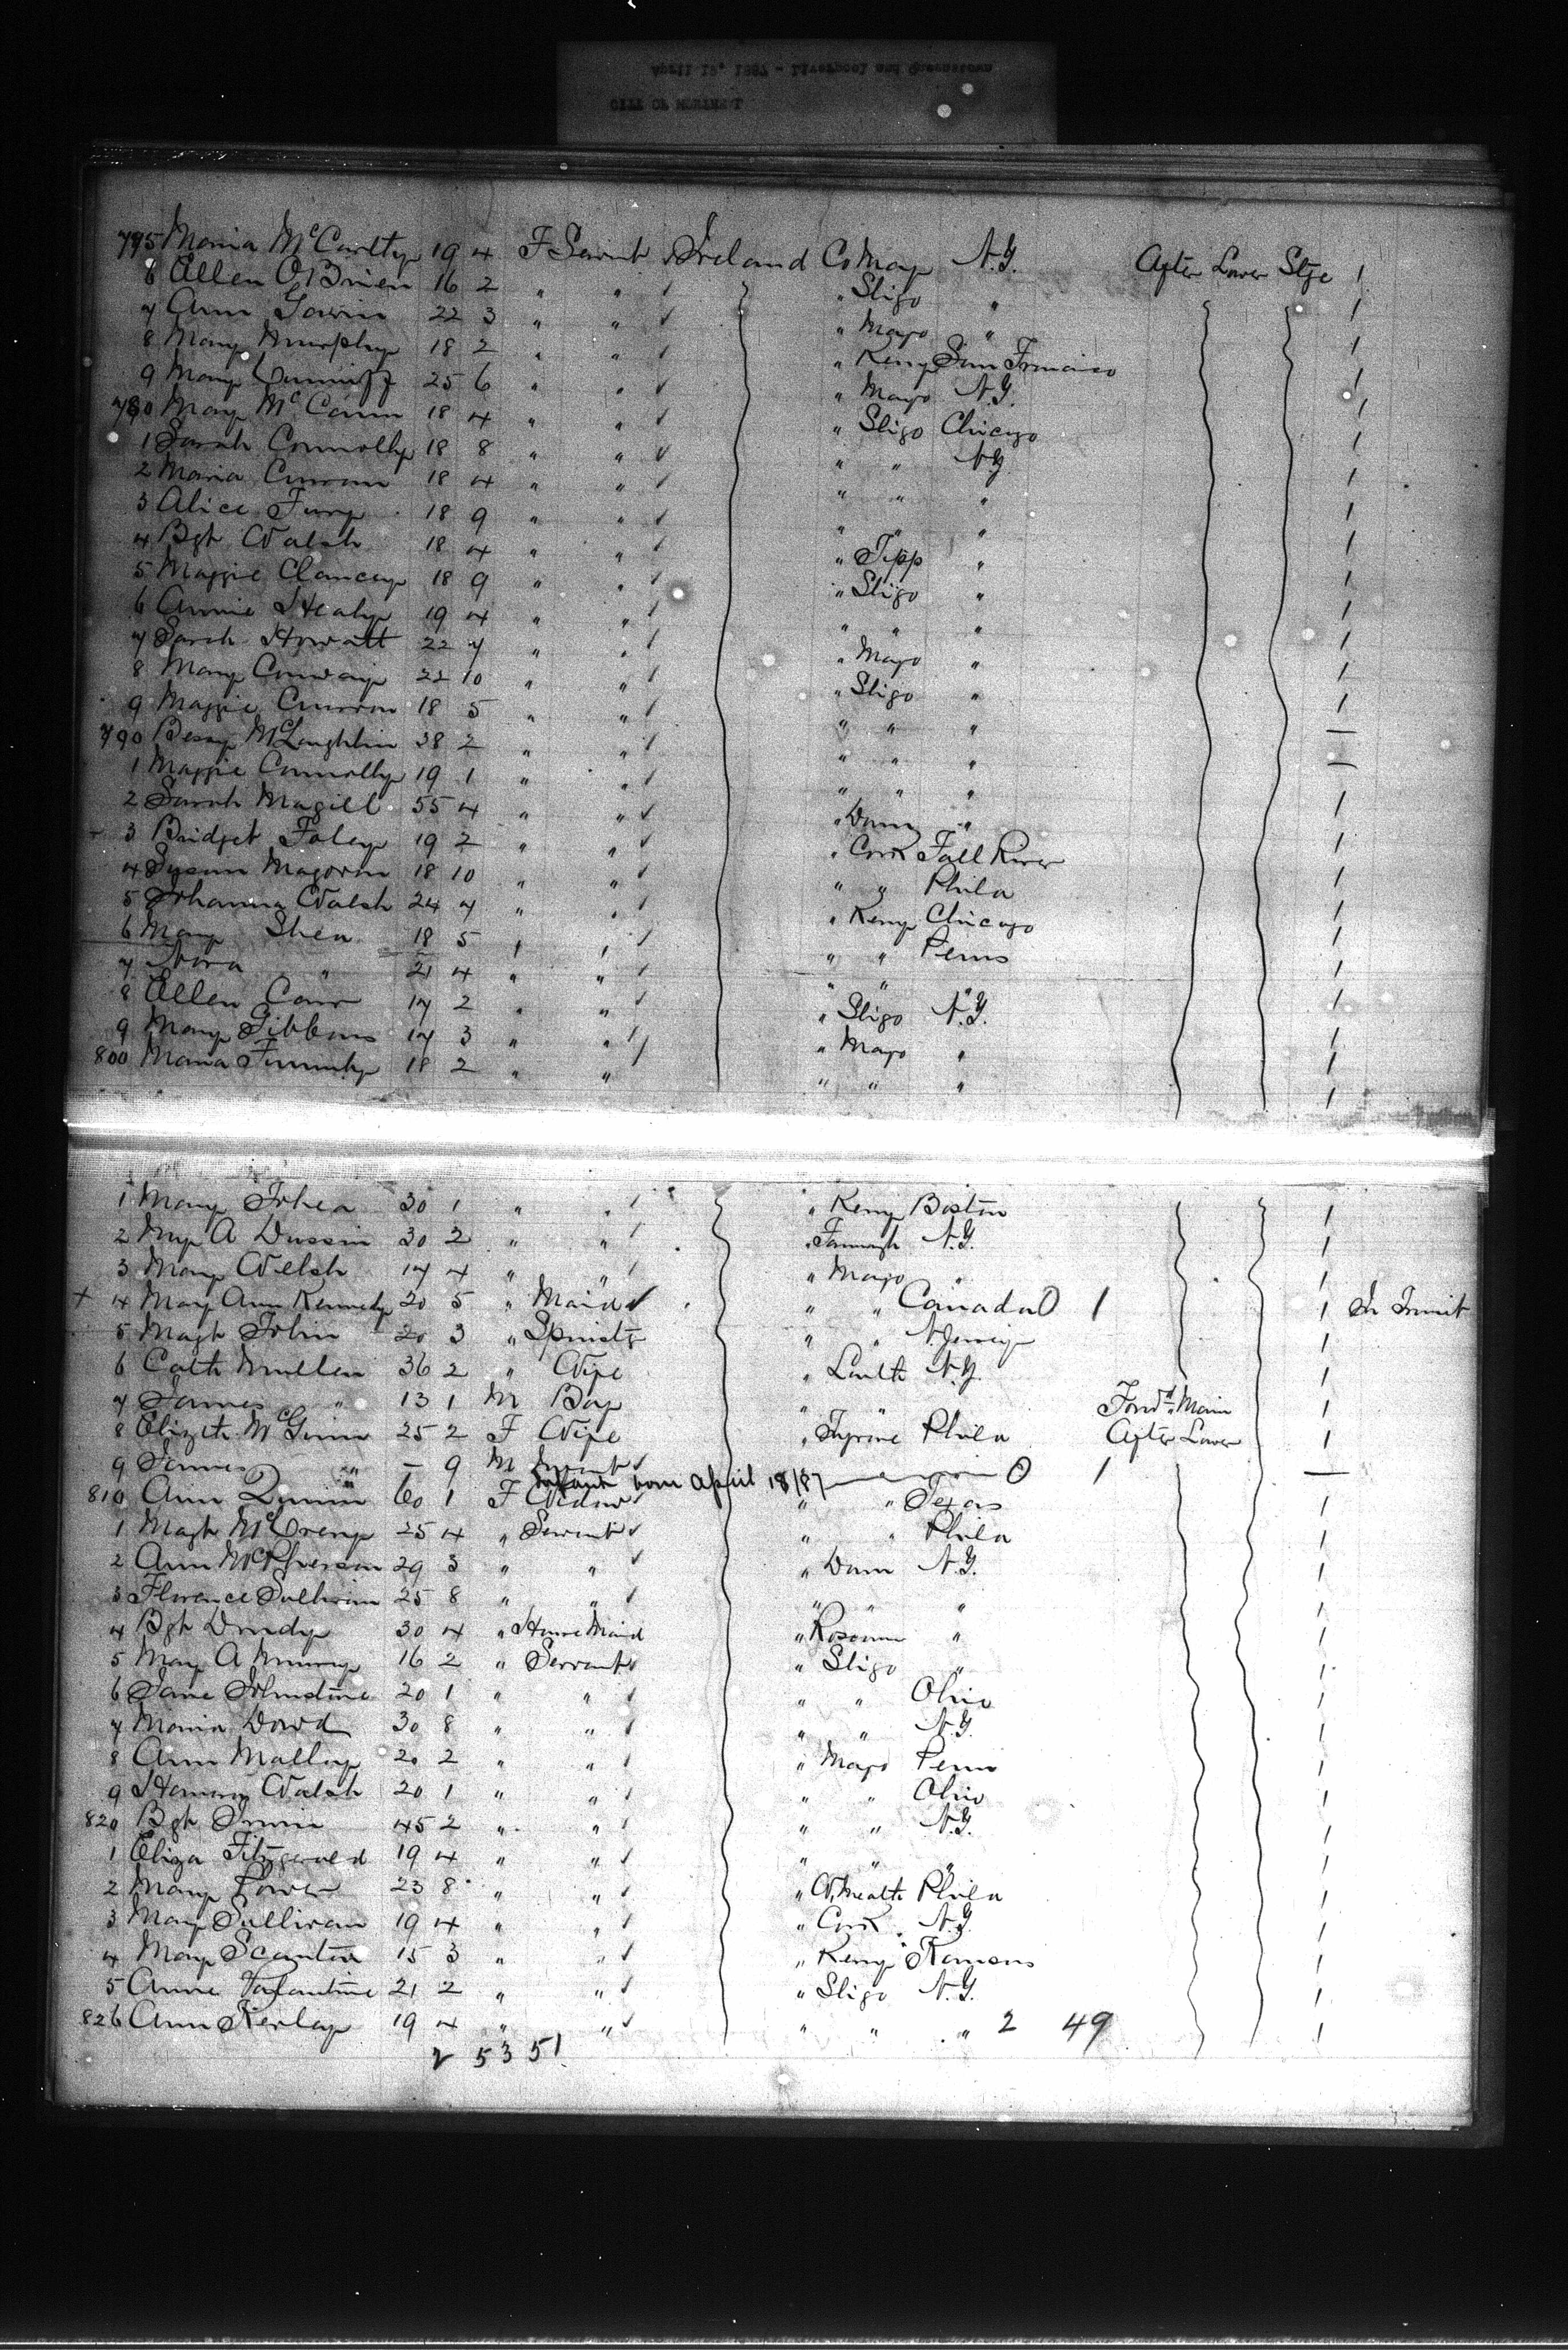 775 Maria McCarthy 19 4 F Servnt Ireland Co Mayo N.Y. After Lower Stge 1
Ellen O'Brien 16 2 " " " Sligo " 1
7 Ann Gavin 22 3 " " " Mayo " 1
8 Mary Murphy 18 2 " " " Kerry San Francisco 1
9 Mary Cunniff 25 6 " " " Mayo N.Y. 1
780 Mary McCann 18 4 " " " Sligo Chicago 1
1 Sarah Connolly 18 8 " " " " N.Y. 1
2 Maria Curran 18 4 " " " " " 1
3 Alice Fury 18 9 " " " " " 1
4 Bgt Walsh 18 4 " " " Tipp " 1
5 Maggie Clancey 18 9 " " " Sligo " 1
6 Annie Healy 19 4 " " " " " 1
7 Sarah Howatt 22 7 " " " Mayo " 1
8 Mary Conway 22 10 " " " Sligo " 1
9 Maggie Curran 18 5 " " " " " 1
790 Bessy McLaughlin 38 2 " " " " "
1 Maggie Connolly 19 1 " " " " "
2 Sarah Magill 55 4 " " " Down " 1
3 Bridget Foley 19 2 " " " Cork Fall River 1
4 Susan Magovrn 18 10 " " " " Phila 1
5 Johanna Walsh 24 7 " " " Kerry Chicago 1
6 Mary Shea 18 5 " " " " Penns 1
7 Nora " 21 4 " " " " " 1
8 Ellen Carr 17 2 " " " Sligo N.Y. 1
9 Mary Gibbons 17 3 " " " Mayo " 1
800 Maria 18 2 " " " " " 1
1 Mary 30 1 " " " Kerry Boston 1
2 My A 30 2 " " " N.Y. 1
3 Mary Welsh 17 4 " " " Mayo " 1
+ 4 Mary Ann Kennedy 20 5 " Maid " " Canada 0 1 1 In Transit
5 Magt Tobin 20 3 " Spinstr " " N.Jersey 1
6 Cath Mullen 36 2 " Wife " Louth N.Y. 1
7 James " 13 1 M Boy " " Forwd Main 1
8 Elizth McGinn 25 2 F Wife " Tyrone Phila After Lower 1
9 James " – 9 M Infant 0 1
Infant born april 18/87
810 Ann Quinn 60 1 F Widow " " Texas 1
1 Magt McCreary 25 4 " Servant " " Phila 1
2 Ann McPherson 29 3 " " " Down N.Y. 1
3 Florence Sullivan 25 8 " " " " " 1
4 Bgt Drudy 30 4 " House Maid " Roscom " 1
5 Mary A Murray 16 2 " Servant " Sligo " 1
6 Jane Johnstone 20 1 " " " " Ohio 1
7 Maria Dowd 30 8 " " " " N.Y. 1
8 Ann Malloy 20 2 " " " Mayo Penn 1
9 Walsh 20 1 " " " " Ohio 1
820 Bgt Irwin 45 2 " " " " N.Y. 1
1 Eliza Fitzgerald 19 4 " " " " " 1
2 Mary Power 23 8 " " " W.Meath Phila 1
3 Mary Sullivan 19 4 " " " Cork N.Y. 1
4 Mary Scanlon 15 3 " " " Kerry Kansas 1
5 Anne Valantine 21 2 " " " Sligo N.Y. 1
826 Ann Kerley 19 4 " " " " " 2 49 1
2 53 51